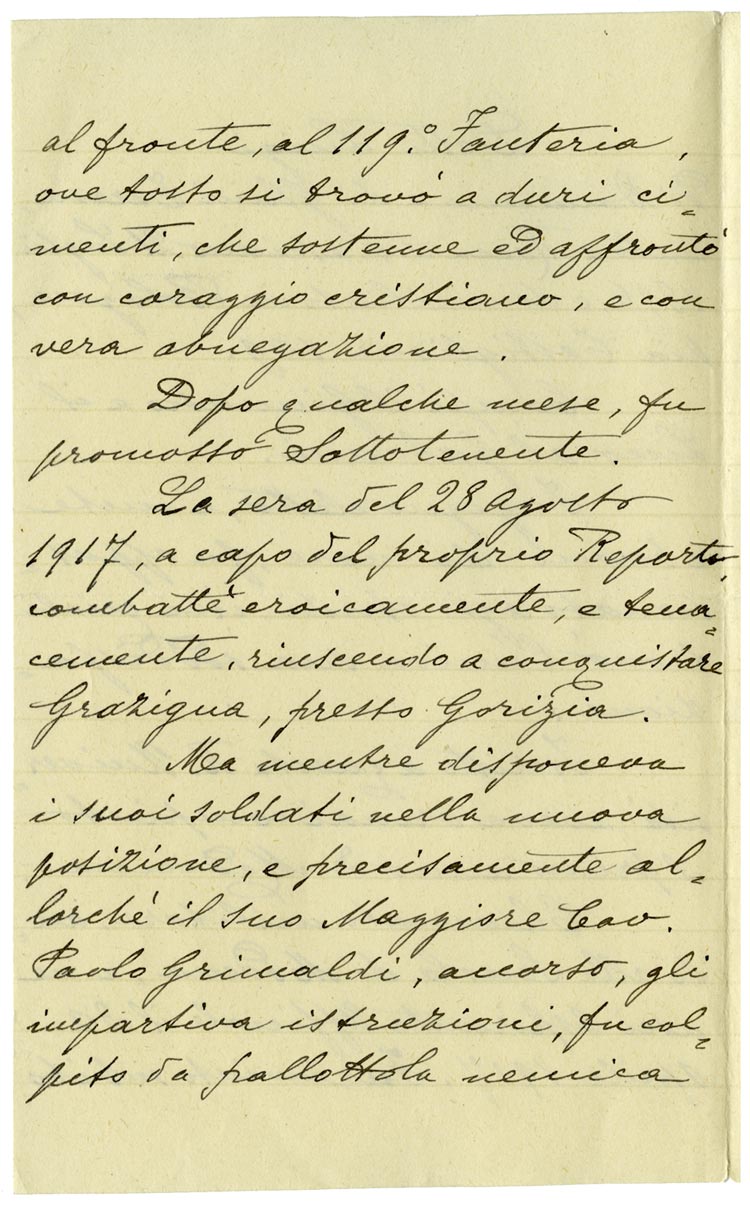 al fronte, al 119.° Fanteria,
ove tosto si trovò a duri ci=
menti, che sostenne ed affrontò
con coraggio cristiano, e con
vera abnegazione.
Dopo qualche mese, fu
promosso Sottotenente.
La sera del 28 Agosto
1917, a capo del proprio Reparto,
combattè eroicamente, e tena=
cemente, riuscendo a conquistare
Grazigna, presso Gorizia.
Ma mentre disponeva
i suoi soldati nella nuova
posizione, e precisamente al=
lorchè il suo Maggiore Cav.
Paolo Grimaldi, accorso, gli
impartiva istruzioni, fu col=
pito da pallottola nemica